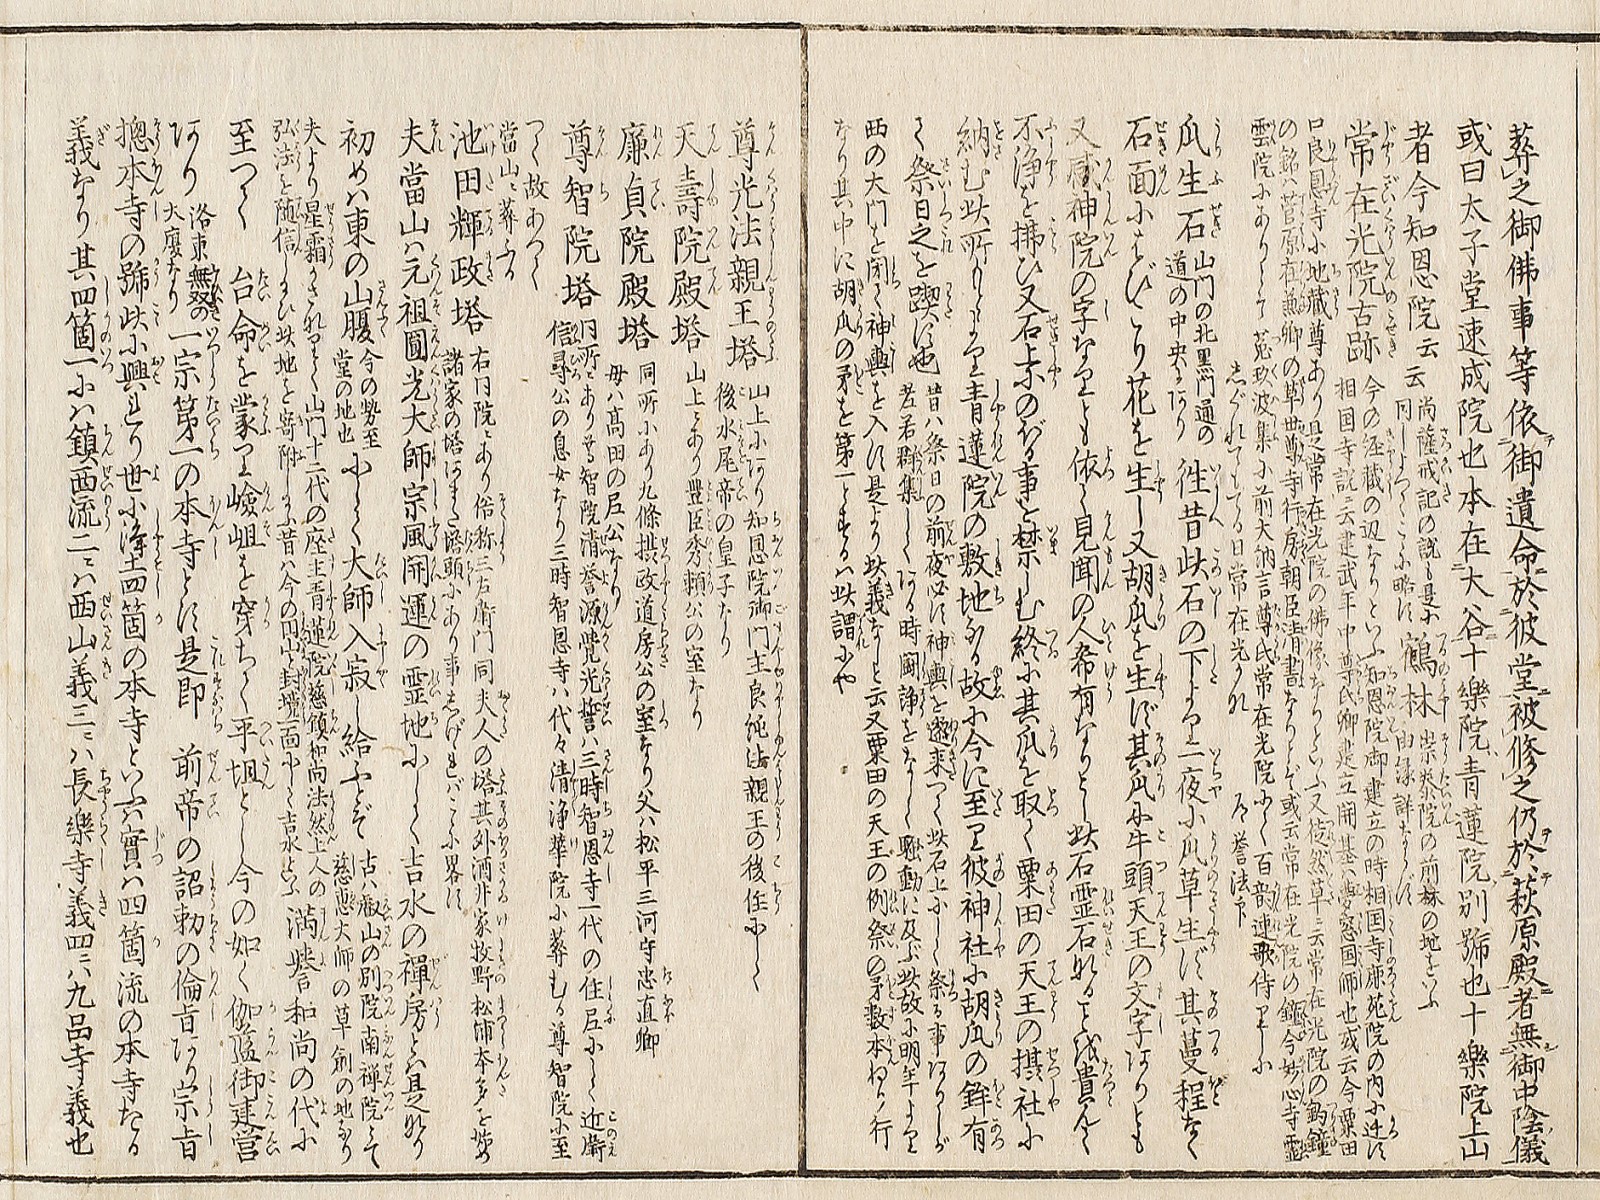 葬之御佛事等依御遺命於彼堂被修之仍於萩原殿者無御中陰儀
或曰太子堂速成院也本在大谷十樂院青蓮院別號也十樂院上山
者今知恩院云云
尚薩戒記の説も是に同しよつてこゝに略す
鶴林
崇泰院の前林の地をいふ由縁詳ならす
常在光院古跡
今の経藏の辺なりといふ知恩院御建立の時相国寺鹿苑院の内に辻す
相国寺説ニ云建武年中尊氏卿建立開基ハ夢窓国師也或云今粟田
口良恩寺に地藏尊あり是常在光院の佛像なりといふ又徒然草ニ云常在光院の鈎鐘
の銘ハ菅原在兼卿の草世尊寺行房朝臣清書なりとぞ或云常在光院の鐘今妙心寺
雲院にありとて 菟玖波集に前大納言尊氏常在光院にて百韵連歌侍りしに
しぐれてもてる日常在光かな
瓜生石
山門の北黒門通の道の中央にあり
徃昔此石の下より一夜に瓜草生ず其蔓程なく
石面にはびこり花を生し又胡瓜を生ず其瓜に牛頭天王の文字ありとも
又感神院の字なりとも依て見聞の人希有なりとし此石霊石なると代貴んで
不淨を掃ひ又石上にのぼる事を禁しむ終に其瓜を取て粟田の天王の摂社に
納む此所もとより青蓮院の敷地なる故に今に至り彼神社に胡瓜の鉾有
て祭日之を喫す也
昔ハ祭日の前夜必す神輿を遷来つて此石上にして祭る事ありしが
若者群集しくある時闘諍をなして騒動に及ぶ此故に明年より
西の大門を閉て神輿を入す是より此義なしと云又粟田の天王の例祭の矛数本ねり行
なり其中に胡瓜の矛を第一とするは此謂にや
尊光法親王塔
山上にあり知恩院御門主良純法親王の後住にして
後水尾帝の皇子なり
天壽院殿塔
山上にあり豊臣秀頼公の室なり
廉貞院殿塔
同所にあり九條摂政道房公の室なり父ハ松平三河守忠直卿
母ハ高田の尼公なり
尊智院塔
同所にあり尊智院清誉源覺光誓ハ三時智恩寺一代の住尼にして近衞
信尋公の息女なり三時智恩寺ハ代々清淨華院に葬むる尊智院に至
つて故あつて
當山ニ葬ふる
池田輝政塔
右同院にあり俗称三左衞門同夫人の塔其外酒井家牧野松浦本多を始め
諸家の塔あまた塔頭にあり事しげければこゝに畧す
夫當山ハ元祖圓光大師宗風開運の霊地にして吉水の禪房とは是なり
初めハ東の山腹
今の勢至堂の地也
にして大師入寂し給ふとぞ
古ハ叡山の別院南禅院とて
慈恵大師の草創の地なり
夫より星霜かさなりて山門十二代の座主青蓮院慈鎮和尚法然上人の
弘法を随信しまひ此地を寄附しまふ昔ハ今の円山と封境一面にして吉水といふ
満譽和尚の代に
至つて 台命を蒙り嶮岨を穿ちて平坦とし今の如く伽藍御建営
あり
洛東無双の大廈なり
一宗第一の本寺とす是即 前帝の詔勅の倫旨あり宗旨
摠本寺の號此に興れり世に淨土四箇の本寺といへ實ハ四箇流の本寺たる
義なり其四箇一にハ鎮西流二ニハ西山義三ニハ長樂寺義四ニハ九品寺義也